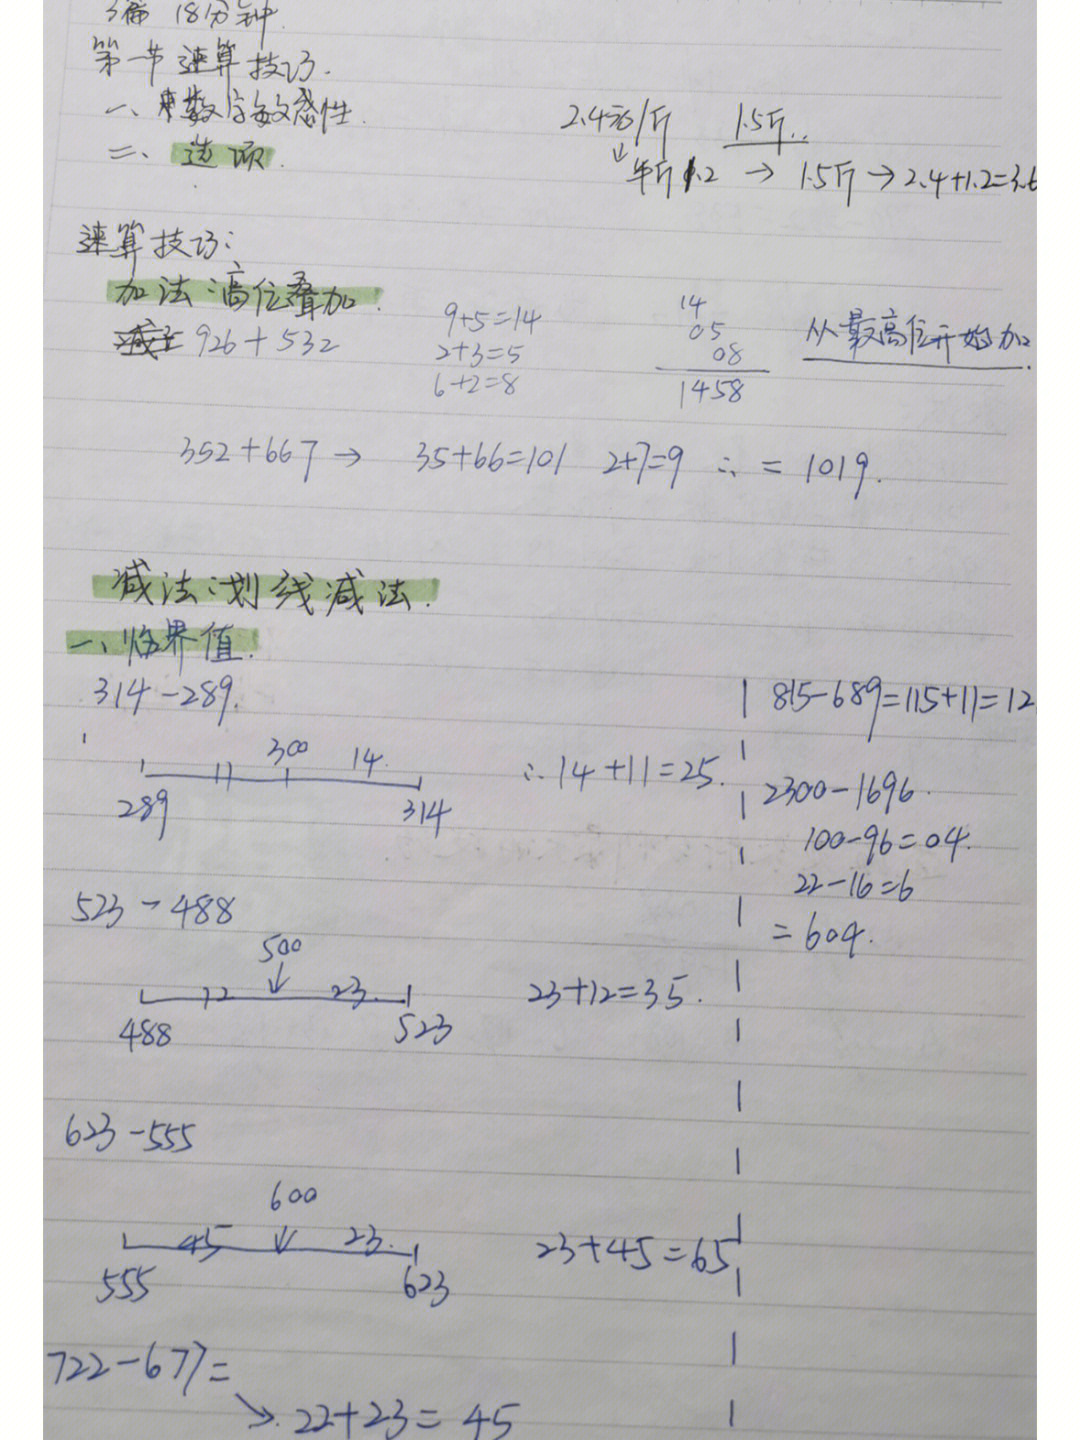 3篇 18分钟.
第一节 速算技巧.
一、数字敏感性.
二、选项.
2.4元/斤 1.5斤..
↓
半斤 1.2 → 1.5斤 → 2.4+1.2=3.6
速算技巧:
加法:高位叠加.
926+532
9+5=14
2+3=5
6+2=8
14
05
08
1458
从最高位开始加.
352+667 → 35+66=101 2+7=9 ∴ = 1019.
减法:划线减法.
一、临界值.
314-289.
300 14.
11
289 314
∴14+11=25.
523-488
500
↓
12 23.
488 523
23+12=35.
623-555
600
↓
45 23.
555 623
23+45=65
722-677=
↘ 22+23=45
815-689=115+11=12
2300-1696.
100-96=04.
22-16=6
=604.